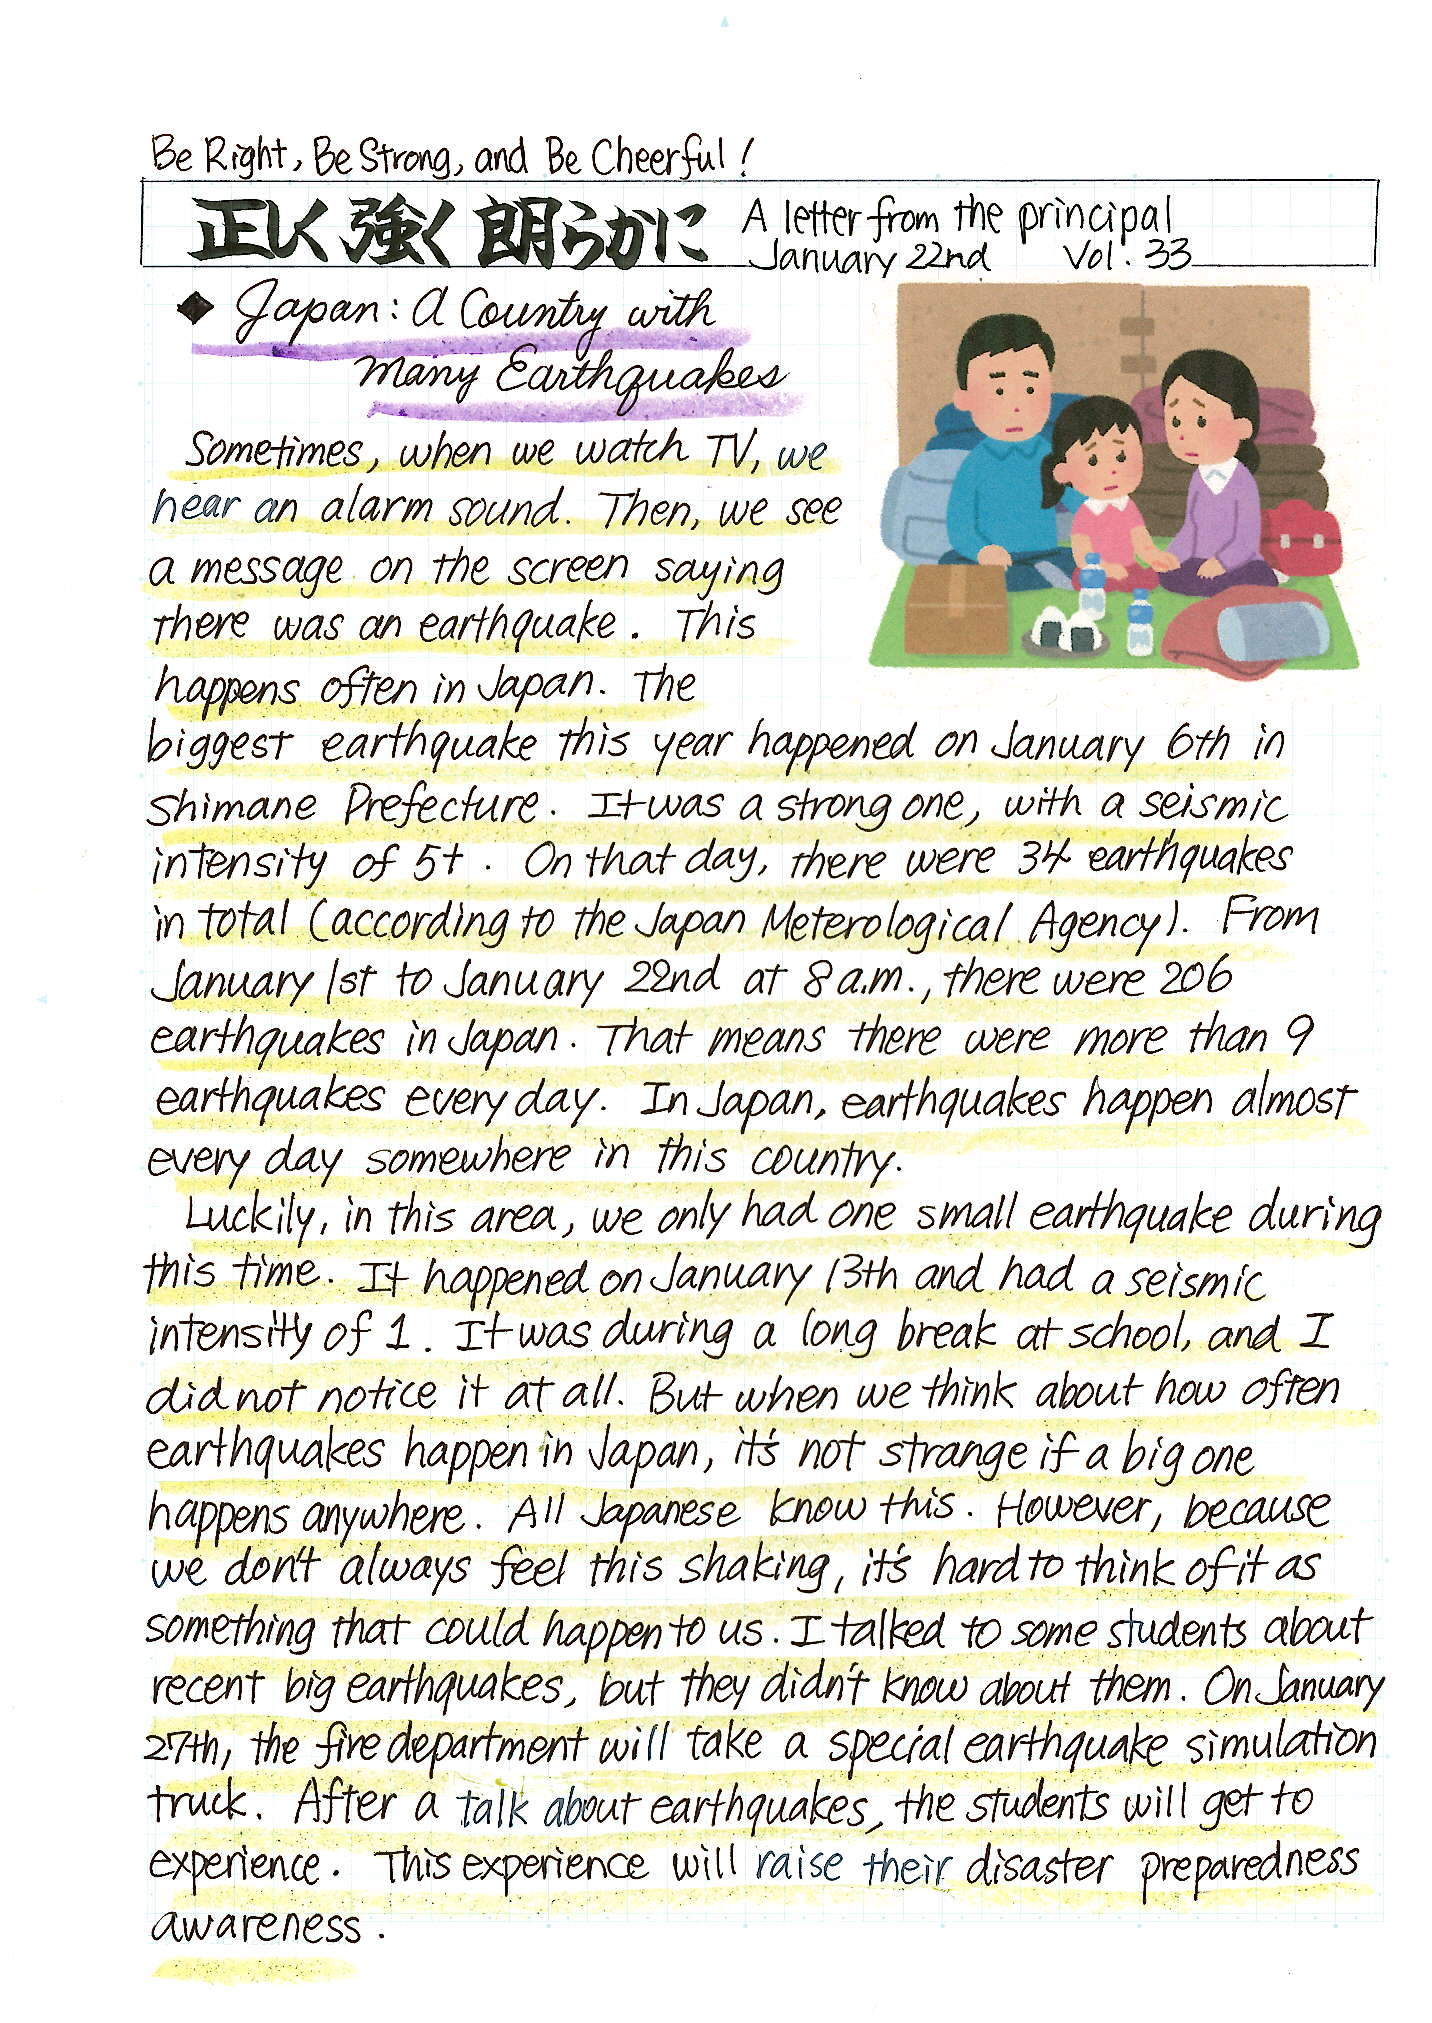 Be Right, Be Strong, and Be Cheerful!
正しく 強く 朗らかに
A letter from the principal
January 22nd Vol. 33
◆ Japan: A Country with
Many Earthquakes
Sometimes, when we watch TV, we
hear an alarm sound. Then, we see
a message on the screen saying
there was an earthquake. This
happens often in Japan. The
biggest earthquake this year happened on January 6th in
Shimane Prefecture. It was a strong one, with a seismic
intensity of 5+. On that day, there were 34 earthquakes
in total (according to the Japan Meterological Agency). From
January 1st to January 22nd at 8 a.m., there were 206
earthquakes in Japan. That means there were more than 9
earthquakes every day. In Japan, earthquakes happen almost
every day somewhere in this country.
Luckily, in this area, we only had one small earthquake during
this time. It happened on January 13th and had a seismic
intensity of 1. It was during a long break at school, and I
did not notice it at all. But when we think about how often
earthquakes happen in Japan, it's not strange if a big one
happens anywhere. All Japanese know this. However, because
we don't always feel this shaking, it's hard to think of it as
something that could happen to us. I talked to some students about
recent big earthquakes, but they didn't know about them. On January
27th, the fire department will take a special earthquake simulation
truck. After a talk about earthquakes, the students will get to
experience. This experience will raise their disaster preparedness
awareness.